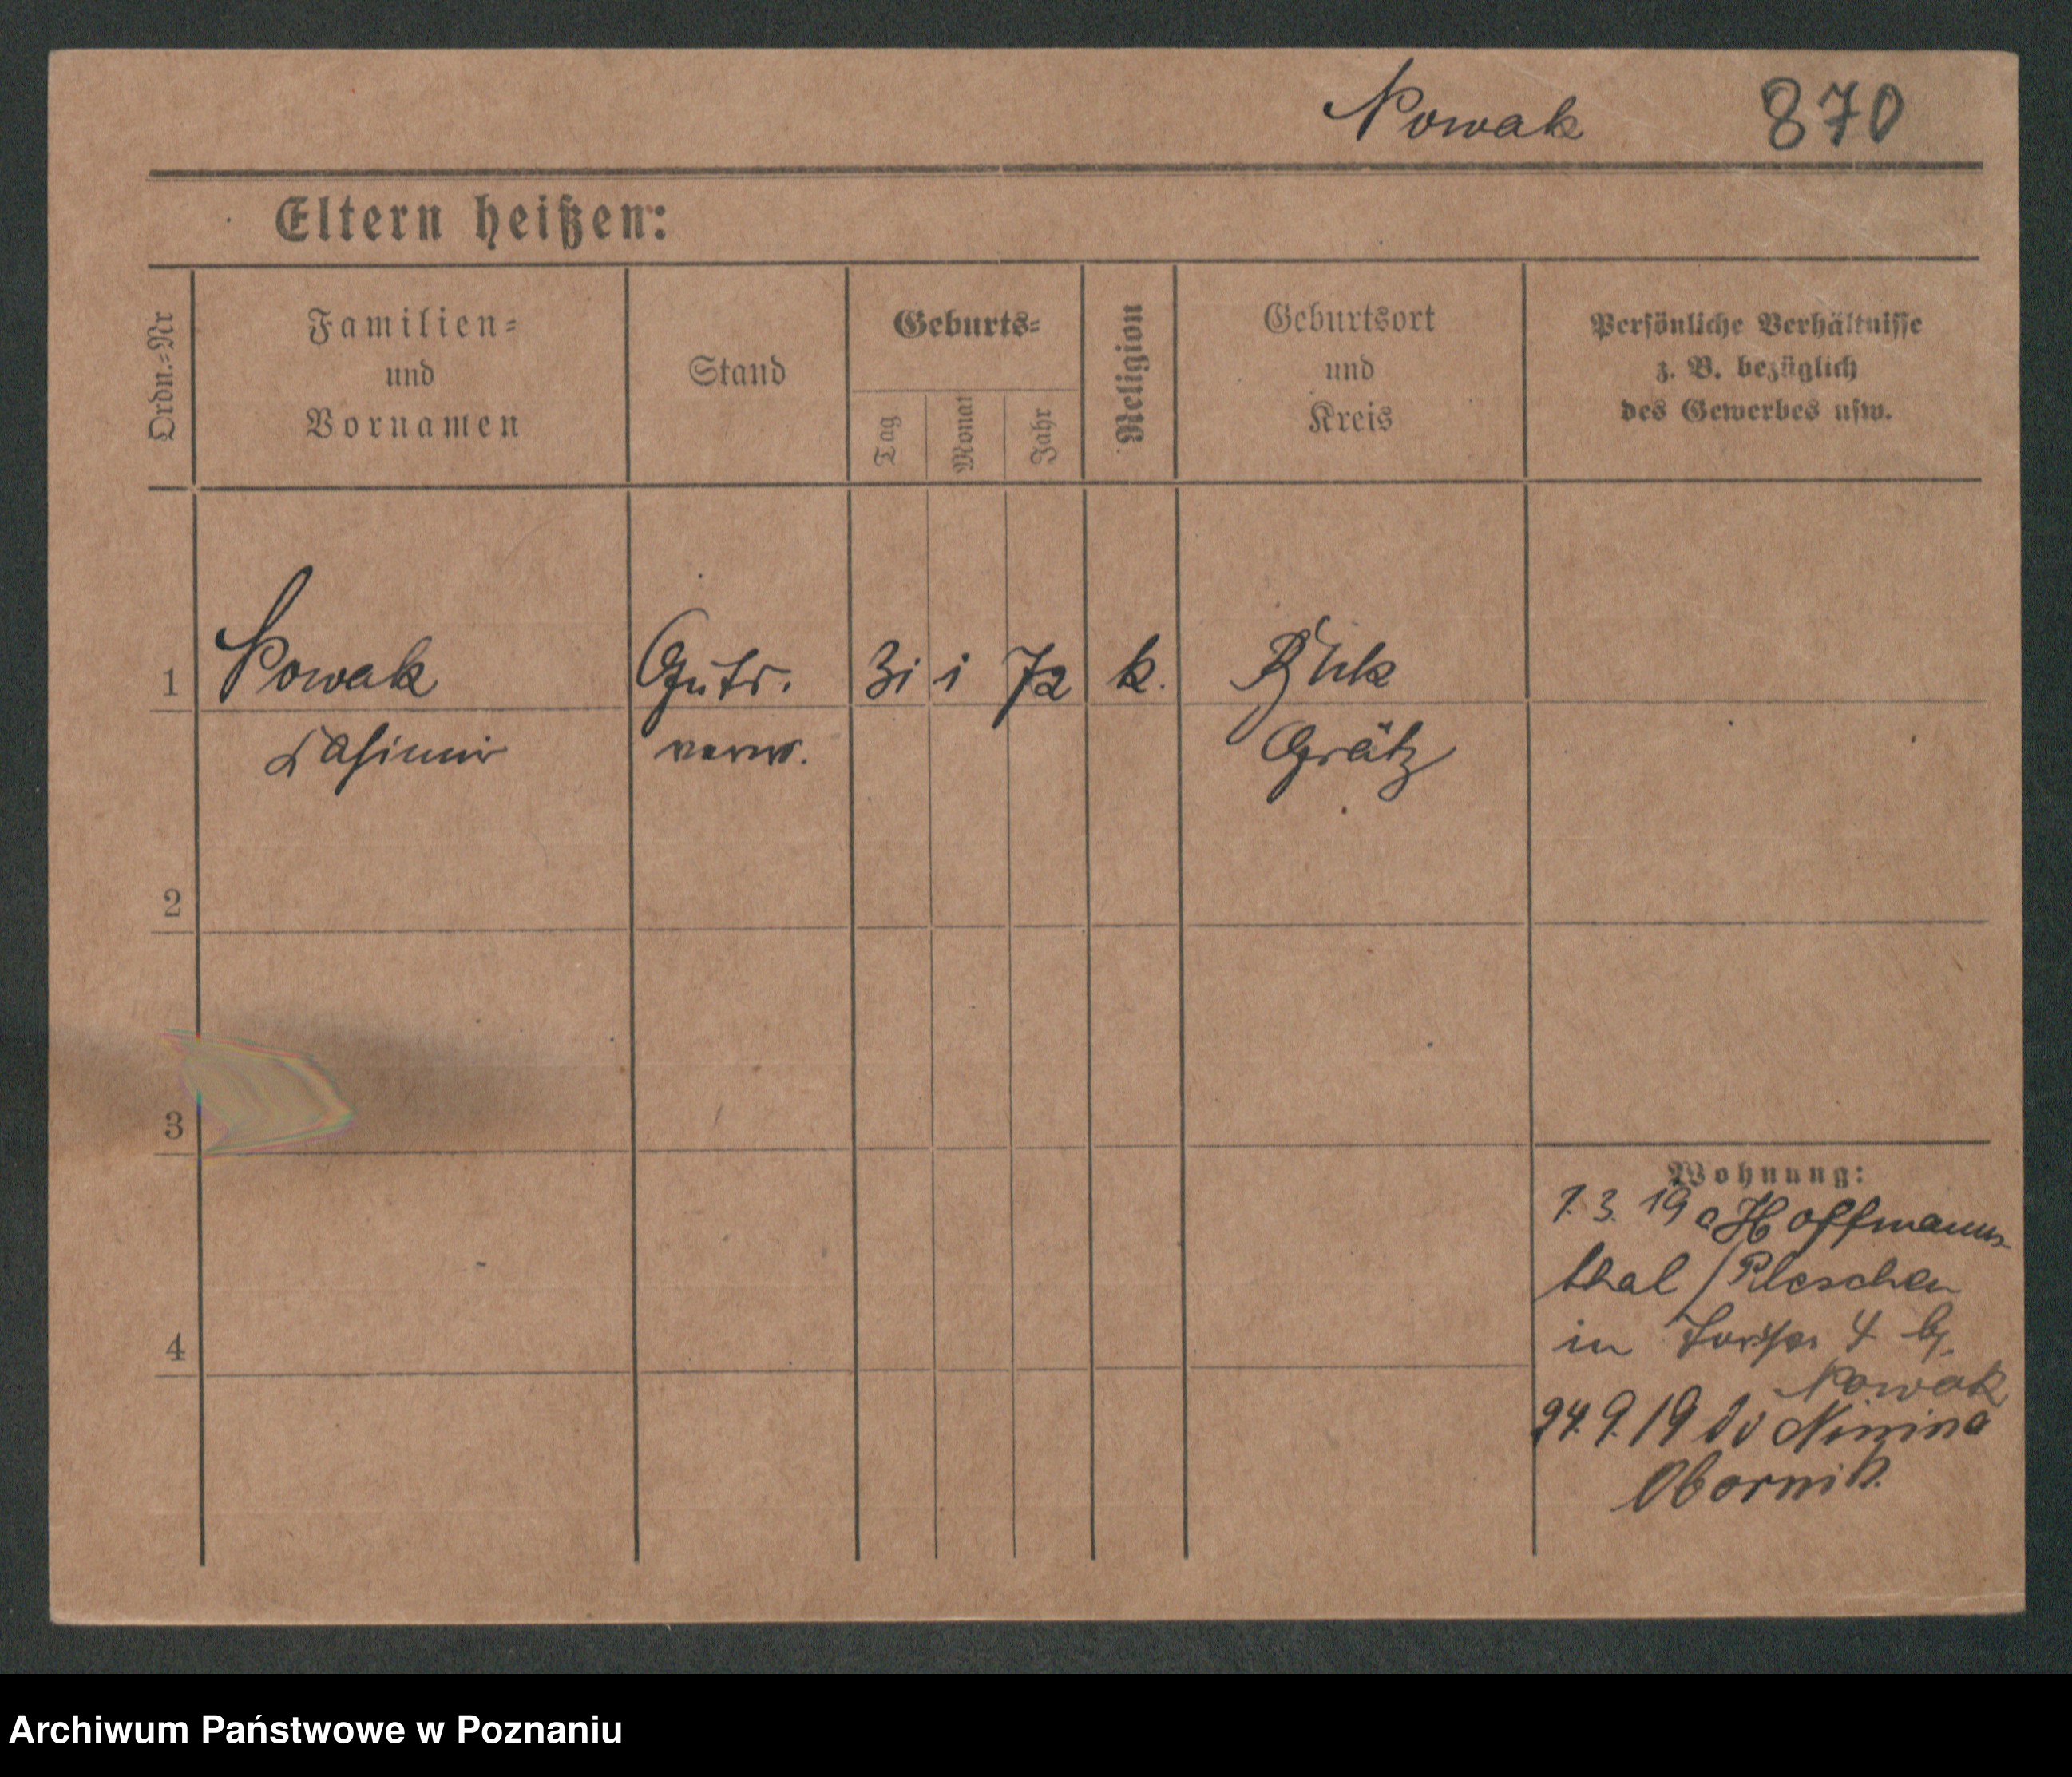 Nowak 870
Eltern heißen:
Ordn.=Nr
Familien=
und
Vornamen
Stand
Geburts=
Tag
Monat
Jahr
Religion
Geburtsort
und
Kreis
Persönliche Verhältnisse
z. B. bezüglich
des Gewerbes usw.
1 Nowak Guts. 31 1 72 k. Buk
Casimir verw. Grätz
2
3
4
Wohnung:
1.3.19 a Hoffmanns
thal / Pleschen
in 4 b.
Nowak
24.9.19 Ninino
Obornik.
Archiwum Państwowe w Poznaniu